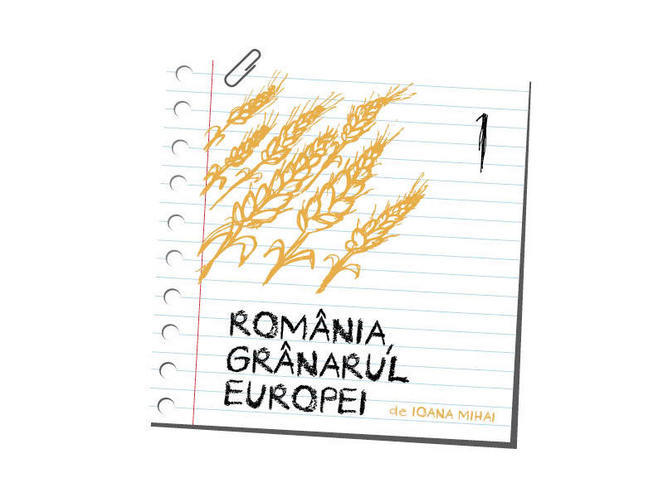 1
ROMÂNIA,
GRÂNARUL
EUROPEI
de IOANA MIHAI